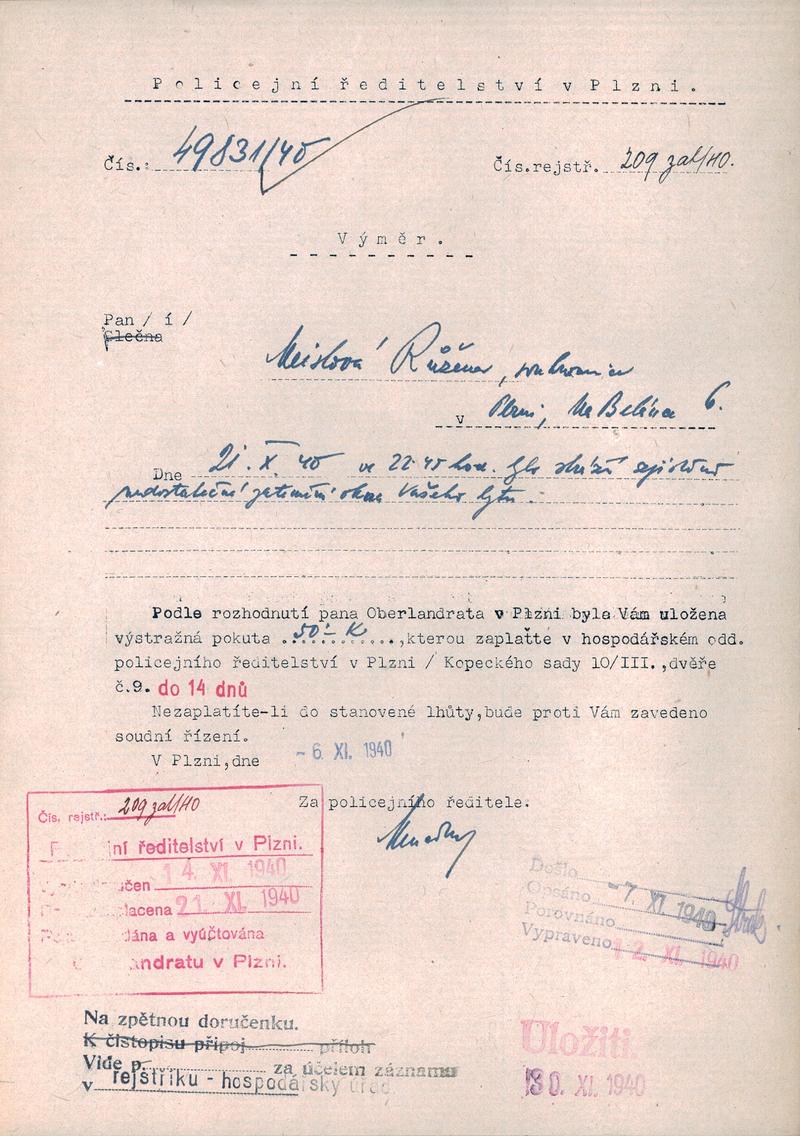 Policejní ředitelství v Plzni.
Čís.: 49831/40 Čís.rejstř. 209 zal/40.
Výměr.
Pan / í /
Slečna
Meislová Růžena, soukromnice
v Plzni, Na Belánce 6.
Dne 21. X. 40 ve 22.40 hod. bylo stráží zjištěno
nedostatečné zatemnění oken Vašeho bytu.
Podle rozhodnutí pana Oberlandrata v Plzni byla Vám uložena
výstražná pokuta 50.- K, kterou zaplaťte v hospodářském odd.
policejního ředitelství v Plzni / Kopeckého sady 10/III.,dvéře
č.9. do 14 dnů
Nezaplatíte-li do stanovené lhůty,bude proti Vám zavedeno
soudní řízení.
V Plzni,dne - 6. XI. 1940
Za policejního ředitele:
Čís. rejstř.: 209 zal/40
ní ředitelství v Plzni.
učen 14. XI. 1940
lacena 21. XI. 1940
dána a vyúčtována
andratu v Plzni.
Došlo
Opsáno -7. XI. 1940
Porovnáno
Vypraveno 12. XI. 1940
Na zpětnou doručenku.
K čistopisu připoj příloh
Vide p. za účelem záznamu
v rejstříku - hospodářský úřad
Uložiti.
30. XI. 1940